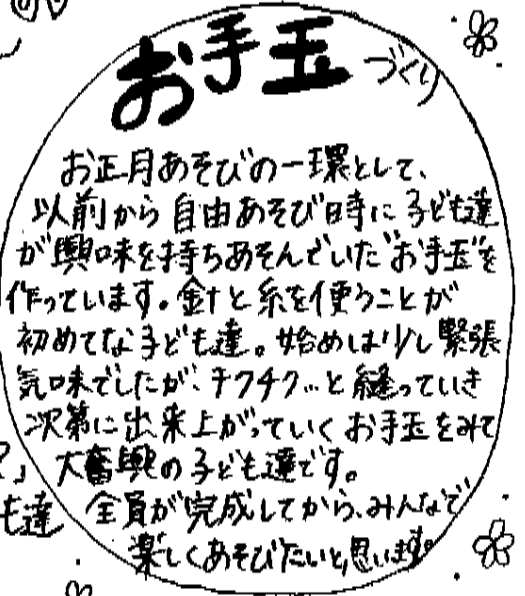 お手玉づくり
お正月あそびの一環として、
以前から自由あそび時に子ども達
が興味を持ちあそんでいた"お手玉"を
作っています。針と糸を使うことが
初めてな子ども達。始めは少し緊張
気味でしたが、チクチク…と縫っていき
次第に出来上がっていくお手玉をみて
大奮興の子ども達です。
全員が完成してから、みんなで
楽しくあそびたいと思います。
」
も達